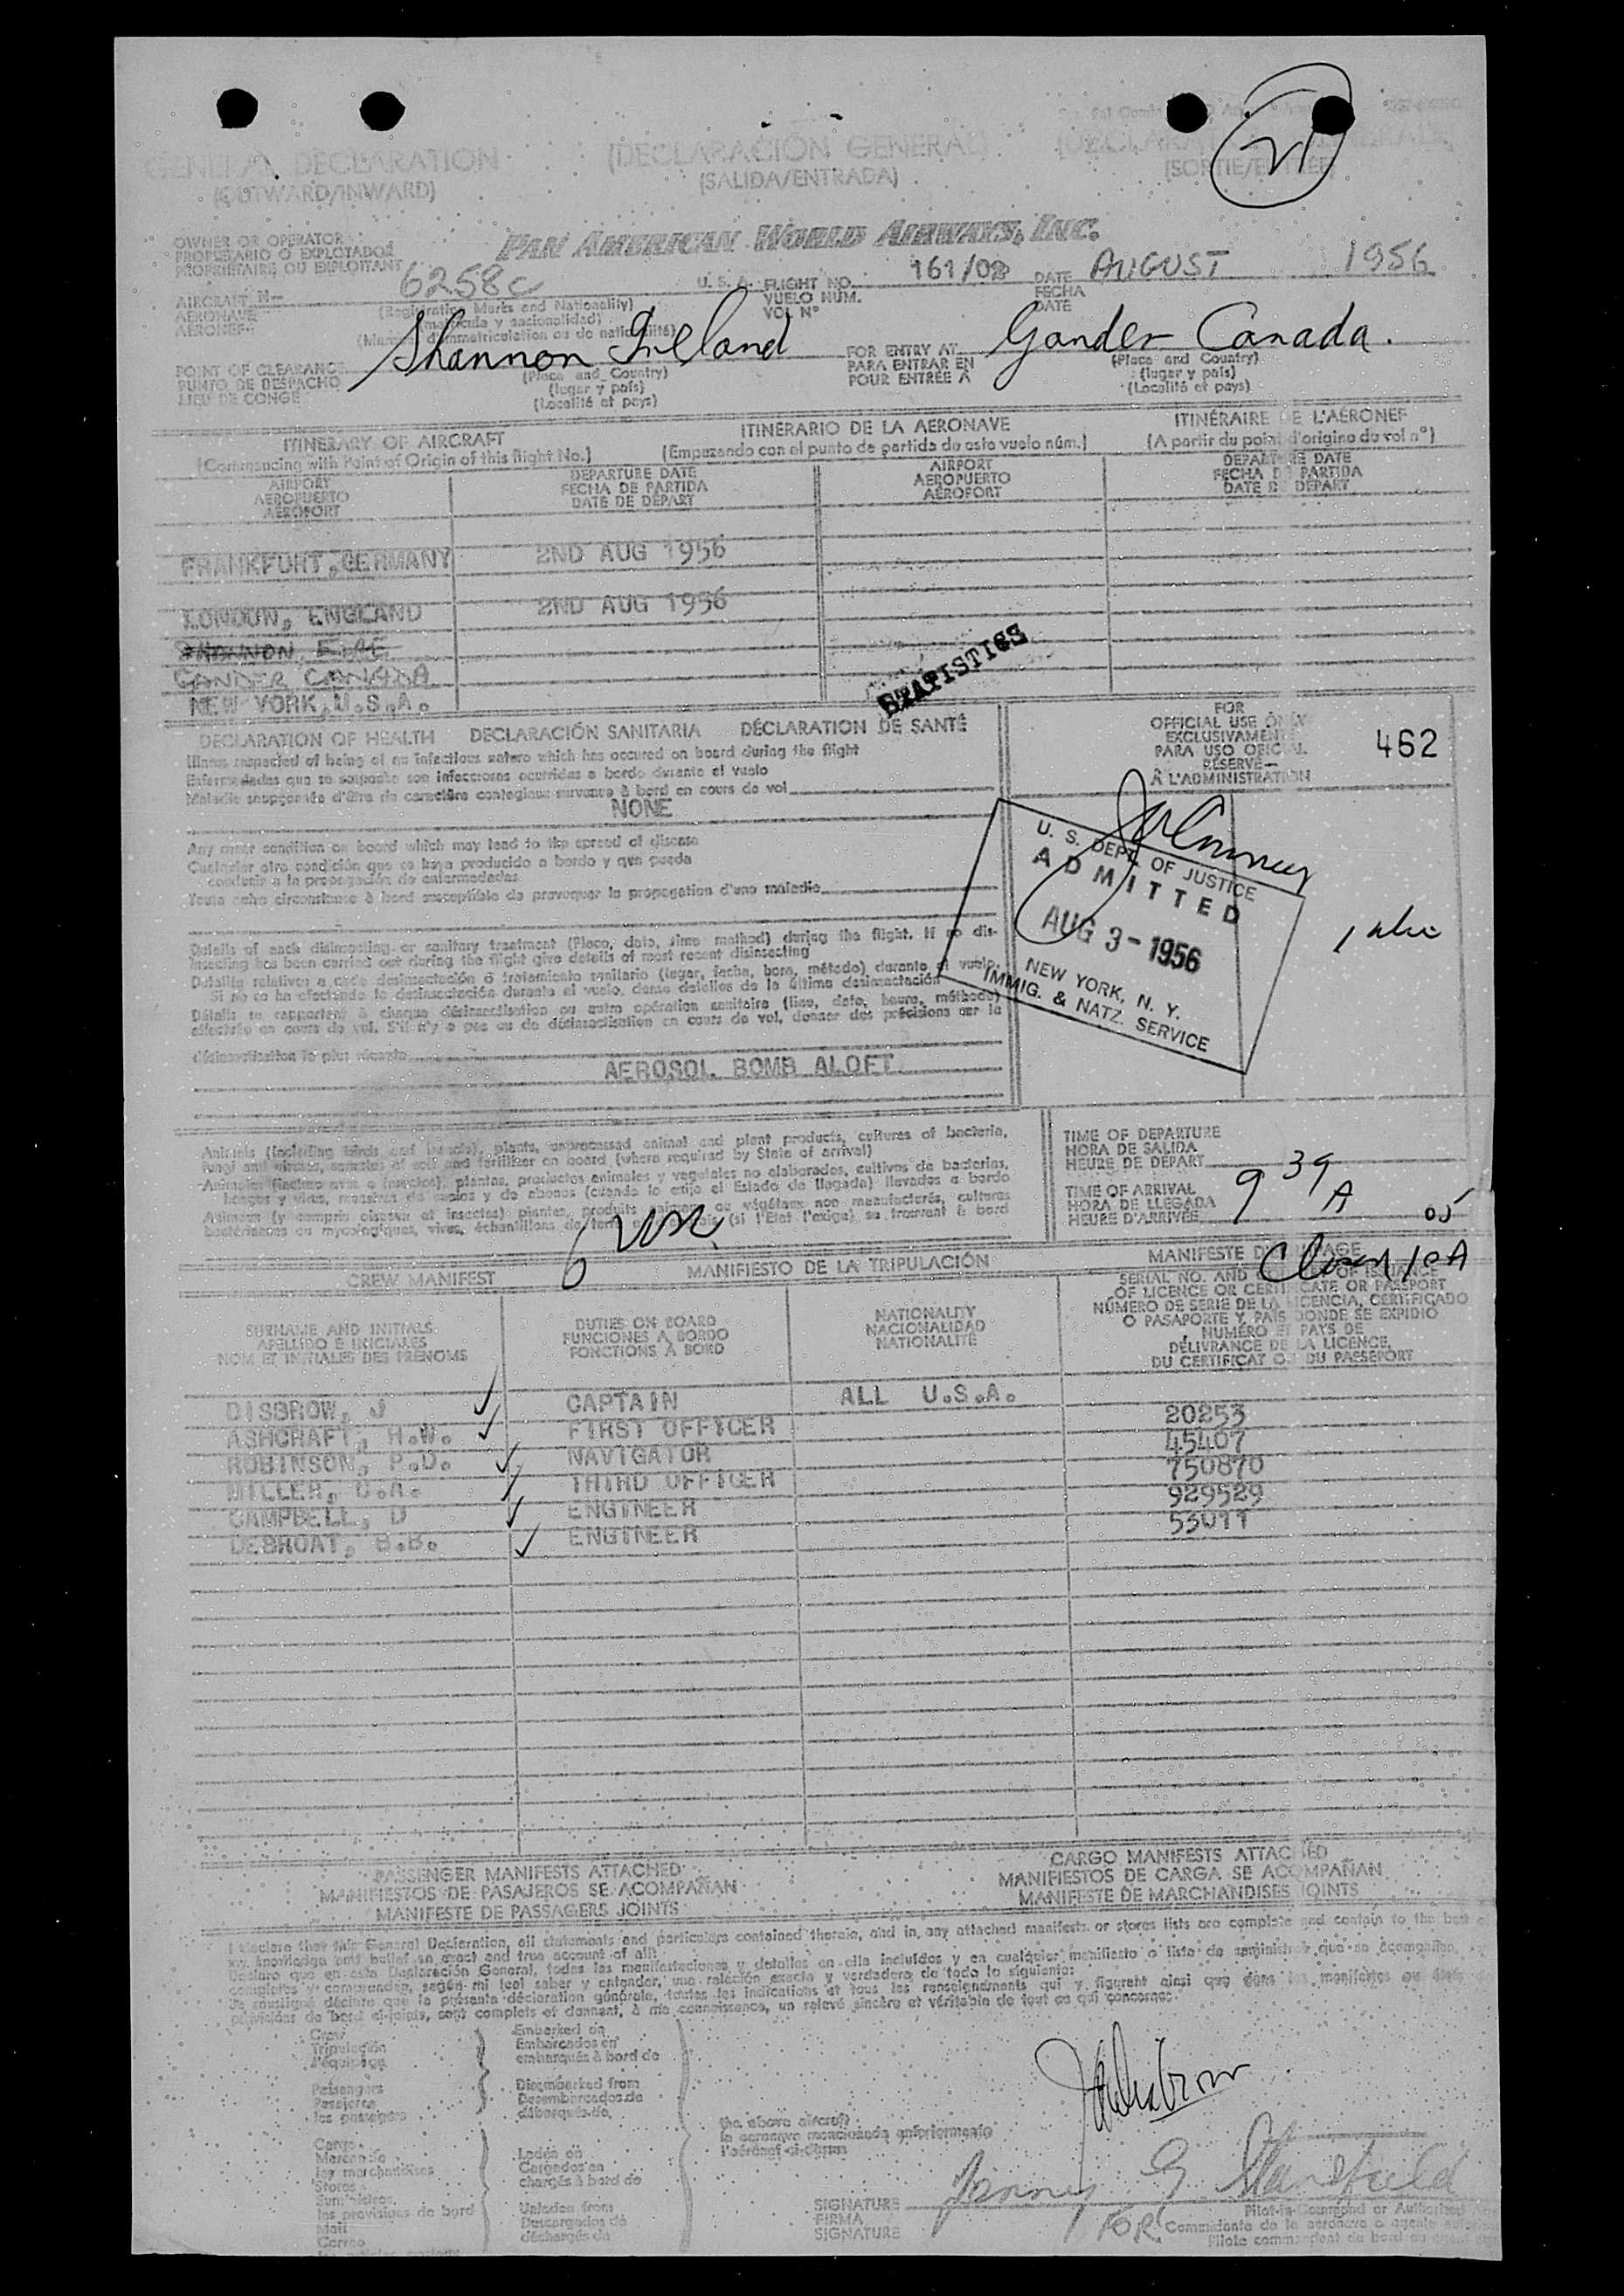 21
GENERAL DECLARATION
(OUTWARD/INWARD)
(DECLARACIÓN GENERAL)
(SALIDA/ENTRADA)
OWNER OR OPERATOR
PROPIETARIO O EXPLOTADOR
PROPRIETAIRE OU EXPLOITANT
PAN AMERICAN WORLD AIRWAYS, INC.
AIRCRAFT
AERONAVE
AÉRONEF
6258C
U. S. A.
(Registration Marks and Nationality)
(matrícula y nacionalidad)
FLIGHT NO.
VUELO NÚM.
VOL Nº
161/02
DATE
FECHA
DATE
AUGUST 1956
POINT OF CLEARANCE
PUNTO DE DESPACHO
LIEU DE CONGÉ
Shannon Ireland
(Place and Country)
(lugar y país)
(Localité et pays)
FOR ENTRY AT
PARA ENTRAR EN
POUR ENTRÉE À
Gander Canada.
(Place and Country)
(lugar y país)
(Localité et pays)
ITINERARY OF AIRCRAFT
(Commencing with Point of Origin of this flight No.)
ITINERARIO DE LA AERONAVE
(Empezando con el punto de partida de este vuelo núm.)
ITINÉRAIRE DE L'AÉRONEF
(A partir du point d'origine de vol nº)
AIRPORT
AEROPUERTO
AÉROPORT
DEPARTURE DATE
FECHA DE PARTIDA
DATE DE DÉPART
AIRPORT
AEROPUERTO
AÉROPORT
DEPARTURE DATE
FECHA DE PARTIDA
DATE DE DÉPART
FRANKFURT, GERMANY 2ND AUG 1956
LONDON, ENGLAND 2ND AUG 1956
SHANNON, EIRE
GANDER CANADA
NEW YORK, U.S.A.
STATISTICS
DECLARATION OF HEALTH DECLARACIÓN SANITARIA DÉCLARATION DE SANTÉ
Illness suspected of being of an infectious nature which has occured on board during the flight
Enfermedades que se sospeche son infecciosas ocurridas a bordo durante el vuelo
Maladie soupçonnée d'être de caractère contagieux survenue à bord en cours de vol
NONE
Any other condition on board which may lead to the spread of disease
Cualquier otra condición que se haya producido a bordo y que pueda
conducir a la propagación de enfermedades
Toute autre circonstance à bord susceptible de provoquer la propagation d'une maladie
Details of each disinsecting or sanitary treatment (Place, date, time method) during the flight. If no dis-
insecting has been carried out during the flight give details of most recent disinsecting
Detalles relativos a cada desinsectación ó tratamiento sanitario (lugar, fecha, hora, método) durante el vuelo.
Si no se ha efectuado la desinsectación durante el vuelo, dense detalles de la última desinsectación
Détails se rapportant à chaque désinsectisation ou autre opération sanitaire (lieu, date, heure, méthode)
effectuée en cours de vol. S'il n'y a pas eu de désinsectisation en cours de vol, donner des précisions sur la
désinsectisation la plus récente
AEROSOL BOMB ALOFT
FOR
OFFICIAL USE ONLY
EXCLUSIVAMENTE
PARA USO OFICIAL
RÉSERVÉ—
À L'ADMINISTRATION
462
U. S. DEPT. OF JUSTICE
ADMITTED
AUG 3 - 1956
NEW YORK, N. Y.
IMMIG. & NATZ. SERVICE
Animals (including birds and insects), plants, unprocessed animal and plant products, cultures of bacteria,
fungi and viruses, samples of soil and fertilizer on board (where required by State of arrival)
Animales (incluso aves e insectos), plantas, productos animales y vegetales no elaborados, cultivos de bacterias,
hongos y virus, muestras de suelos y de abonos (cuando lo exija el Estado de llegada) llevados a bordo
TIME OF DEPARTURE
HORA DE SALIDA
HEURE DE DÉPART
TIME OF ARRIVAL
HORA DE LLEGADA
HEURE D'ARRIVÉE
9 39 A
05
6
10 A
CREW MANIFEST
MANIFIESTO DE LA TRIPULACIÓN
SURNAME AND INITIALS
APELLIDO E INICIALES
NOM ET INITIALES DES PRÉNOMS
DUTIES ON BOARD
FUNCIONES A BORDO
FONCTIONS À BORD
NATIONALITY
NACIONALIDAD
NATIONALITÉ
OF LICENCE OR CERTIFICATE OR PASSPORT
NÚMERO DE SERIE DE LA LICENCIA, CERTIFICADO
O PASAPORTE Y PAÍS DONDE SE EXPIDIÓ
NUMÉRO ET PAYS DE
DÉLIVRANCE DE LA LICENCE,
DU CERTIFICAT OU DU PASSEPORT
DISBROW, J CAPTAIN ALL U.S.A. 20253
ASHCRAFT, H.W. FIRST OFFICER 45407
ROBINSON, P.D. NAVIGATOR 750870
MILLER, THIRD OFFICER 929529
CAMPBELL, D ENGINEER 53011
DEBROAT, B.B. ENGINEER
PASSENGER MANIFESTS ATTACHED
MANIFIESTOS DE PASAJEROS SE ACOMPAÑAN
MANIFESTE DE PASSAGERS JOINTS
CARGO MANIFESTS ATTACHED
MANIFIESTOS DE CARGA SE ACOMPAÑAN
MANIFESTE DE MARCHANDISES JOINTS
I declare that this General Declaration, all statements and particulars contained therein, and in any attached manifests or stores lists are complete and contain to the best of
my knowledge and belief an exact and true account of all:
Declaro que en esta Declaración General, todas las manifestaciones y detalles en ella incluídos y en cualquier manifiesto o lista de suministros que se acompañan,
completos y comprenden, según mi leal saber y entender, una relación exacta y verdadera de todo lo siguiente:
Crew
Tripulación
l'équipage
Passengers
Pasajeros
les passagers
Embarked on
Embarcados en
embarqués à bord de
Disembarked from
Desembarcados de
débarqués de
Cargo
Mercancía
les marchandises
Stores
Suministros
les provisions de bord
Mail
Correo
Laden on
Cargados en
chargés à bord de
Unladen from
Descargados de
déchargés de
the above aircraft
la aeronave mencionada anteriormente
l'aéronef ci-dessus
SIGNATURE
FIRMA
SIGNATURE
FOR